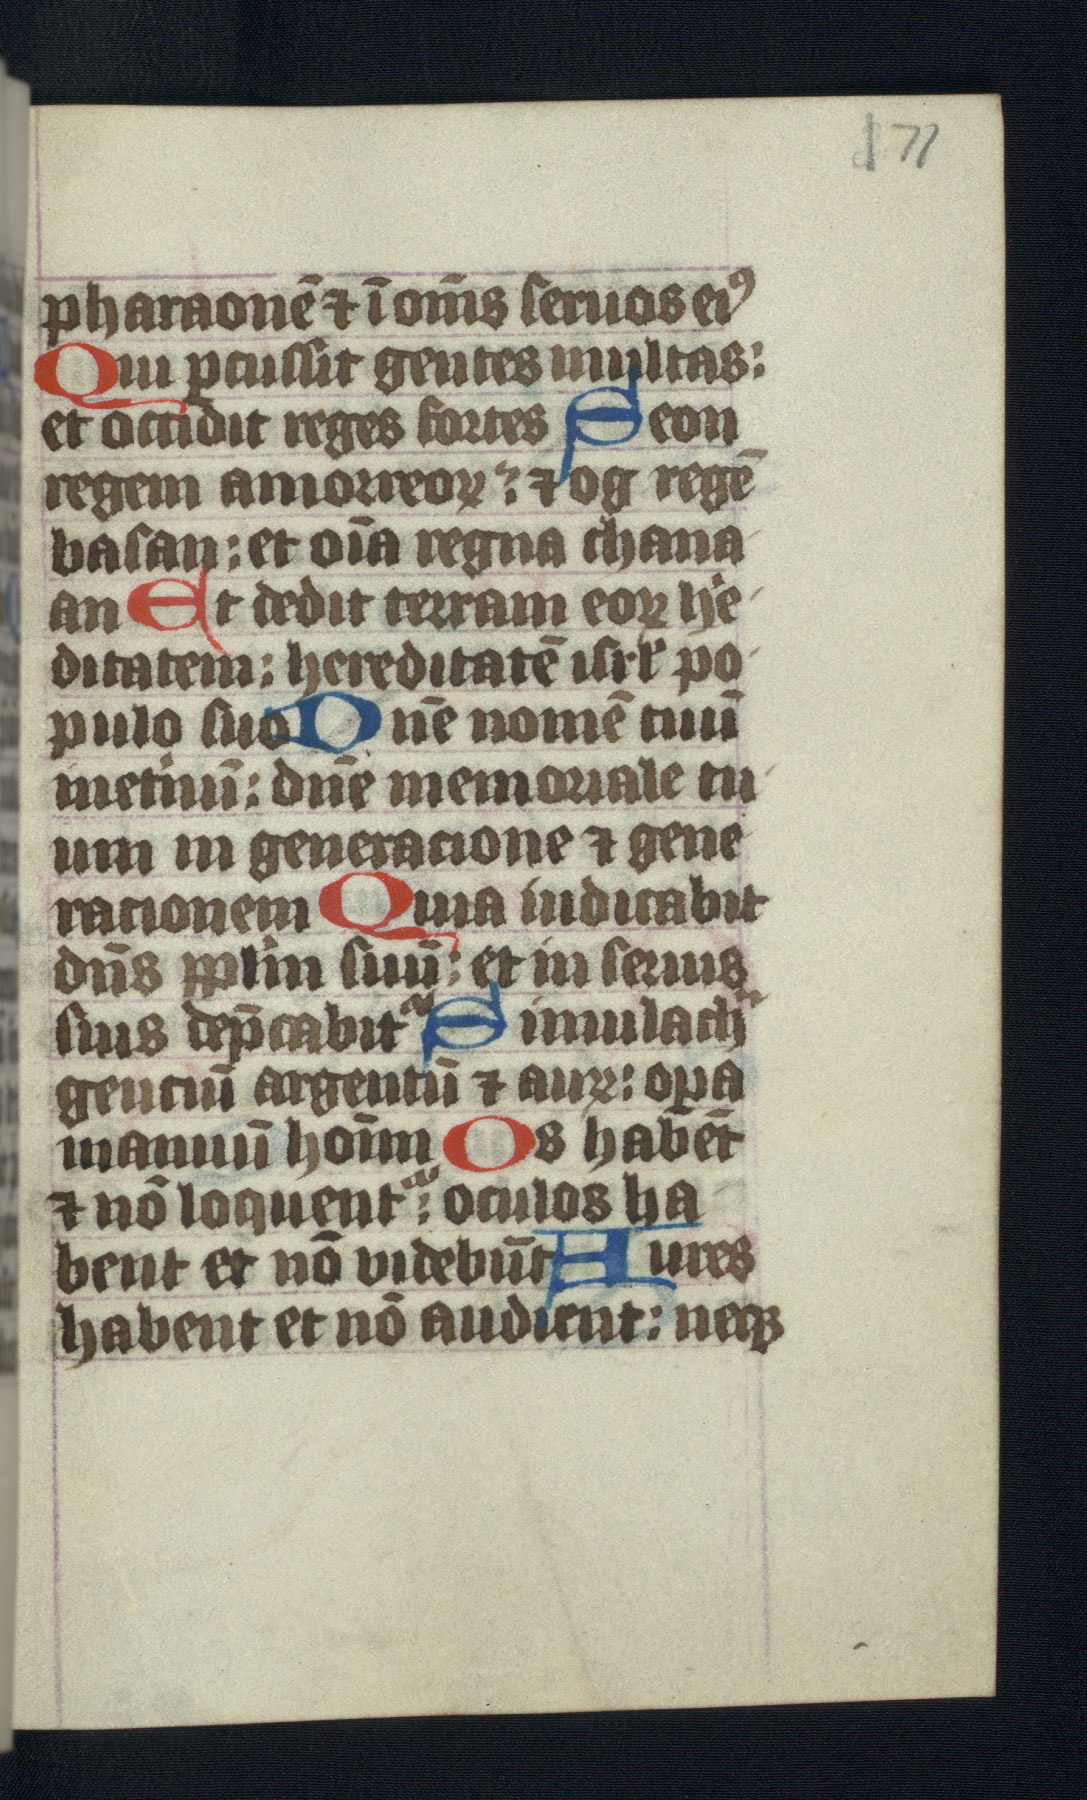 171
pharaonē ⁊ ī om̄s seruos eiꝰ
Qui ꝑcussit gentes multas:
et occidit reges fortes Seon
regem amorreoꝝ: ⁊ og regē
basan: et oīa regna chana
an Et dedit terram eoꝝ he
ditatem: hereditatē isrl̄ po
pulo suo Dn̄e nomē tuū
inet͛nū: dn̄e memoriale tu
um in generacione ⁊ gene
racionem Quia iudicabit
dn̄s pplm̄ suū: et in seruis
suis dep̄cabit᷑ Simulach᷑
genciū argentū ⁊ auꝝ: oꝑa
manuū hoīm Os habēt
⁊ nō loquent᷑: oculos ha
bent et nō videbūt Aures
habent et nō audient: neqꝫ